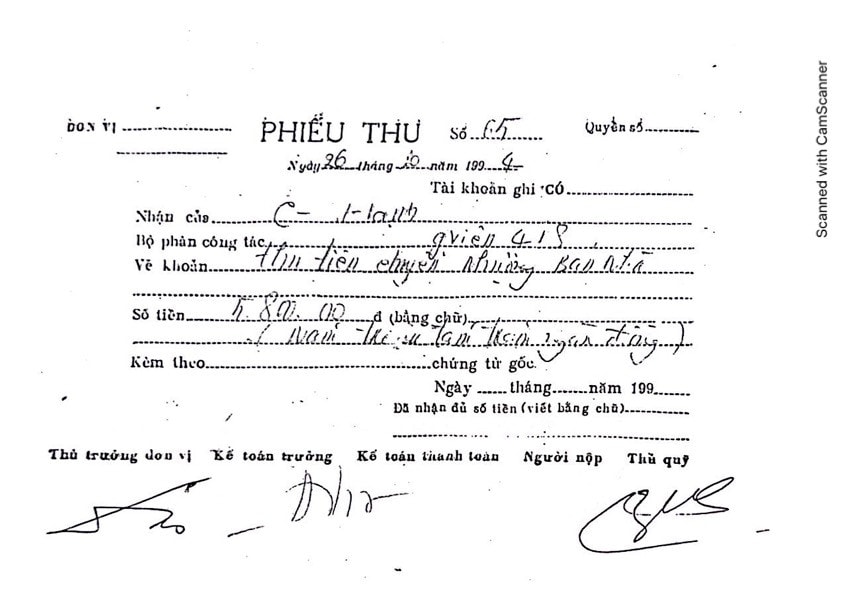 ĐƠN VỊ
PHIẾU THU
Số 65
Quyển số
Ngày 26 tháng 10 năm 1994
Tài khoản ghi CÓ
Nhận của C- Hạnh
Bộ phận công tác gviên 418
Về khoản thu tiền chuyển nhượng bán nhà
Số tiền 5.800.00 đ (bằng chữ)
(Năm triệu tám trăm ngàn đồng)
Kèm theo chứng từ gốc
Ngày tháng năm 199
Đã nhận đủ số tiền (viết bằng chữ)
Thủ trưởng đơn vị Kế toán trưởng Kế toán thanh toán Người nộp Thủ quỹ
Scanned with CamScanner